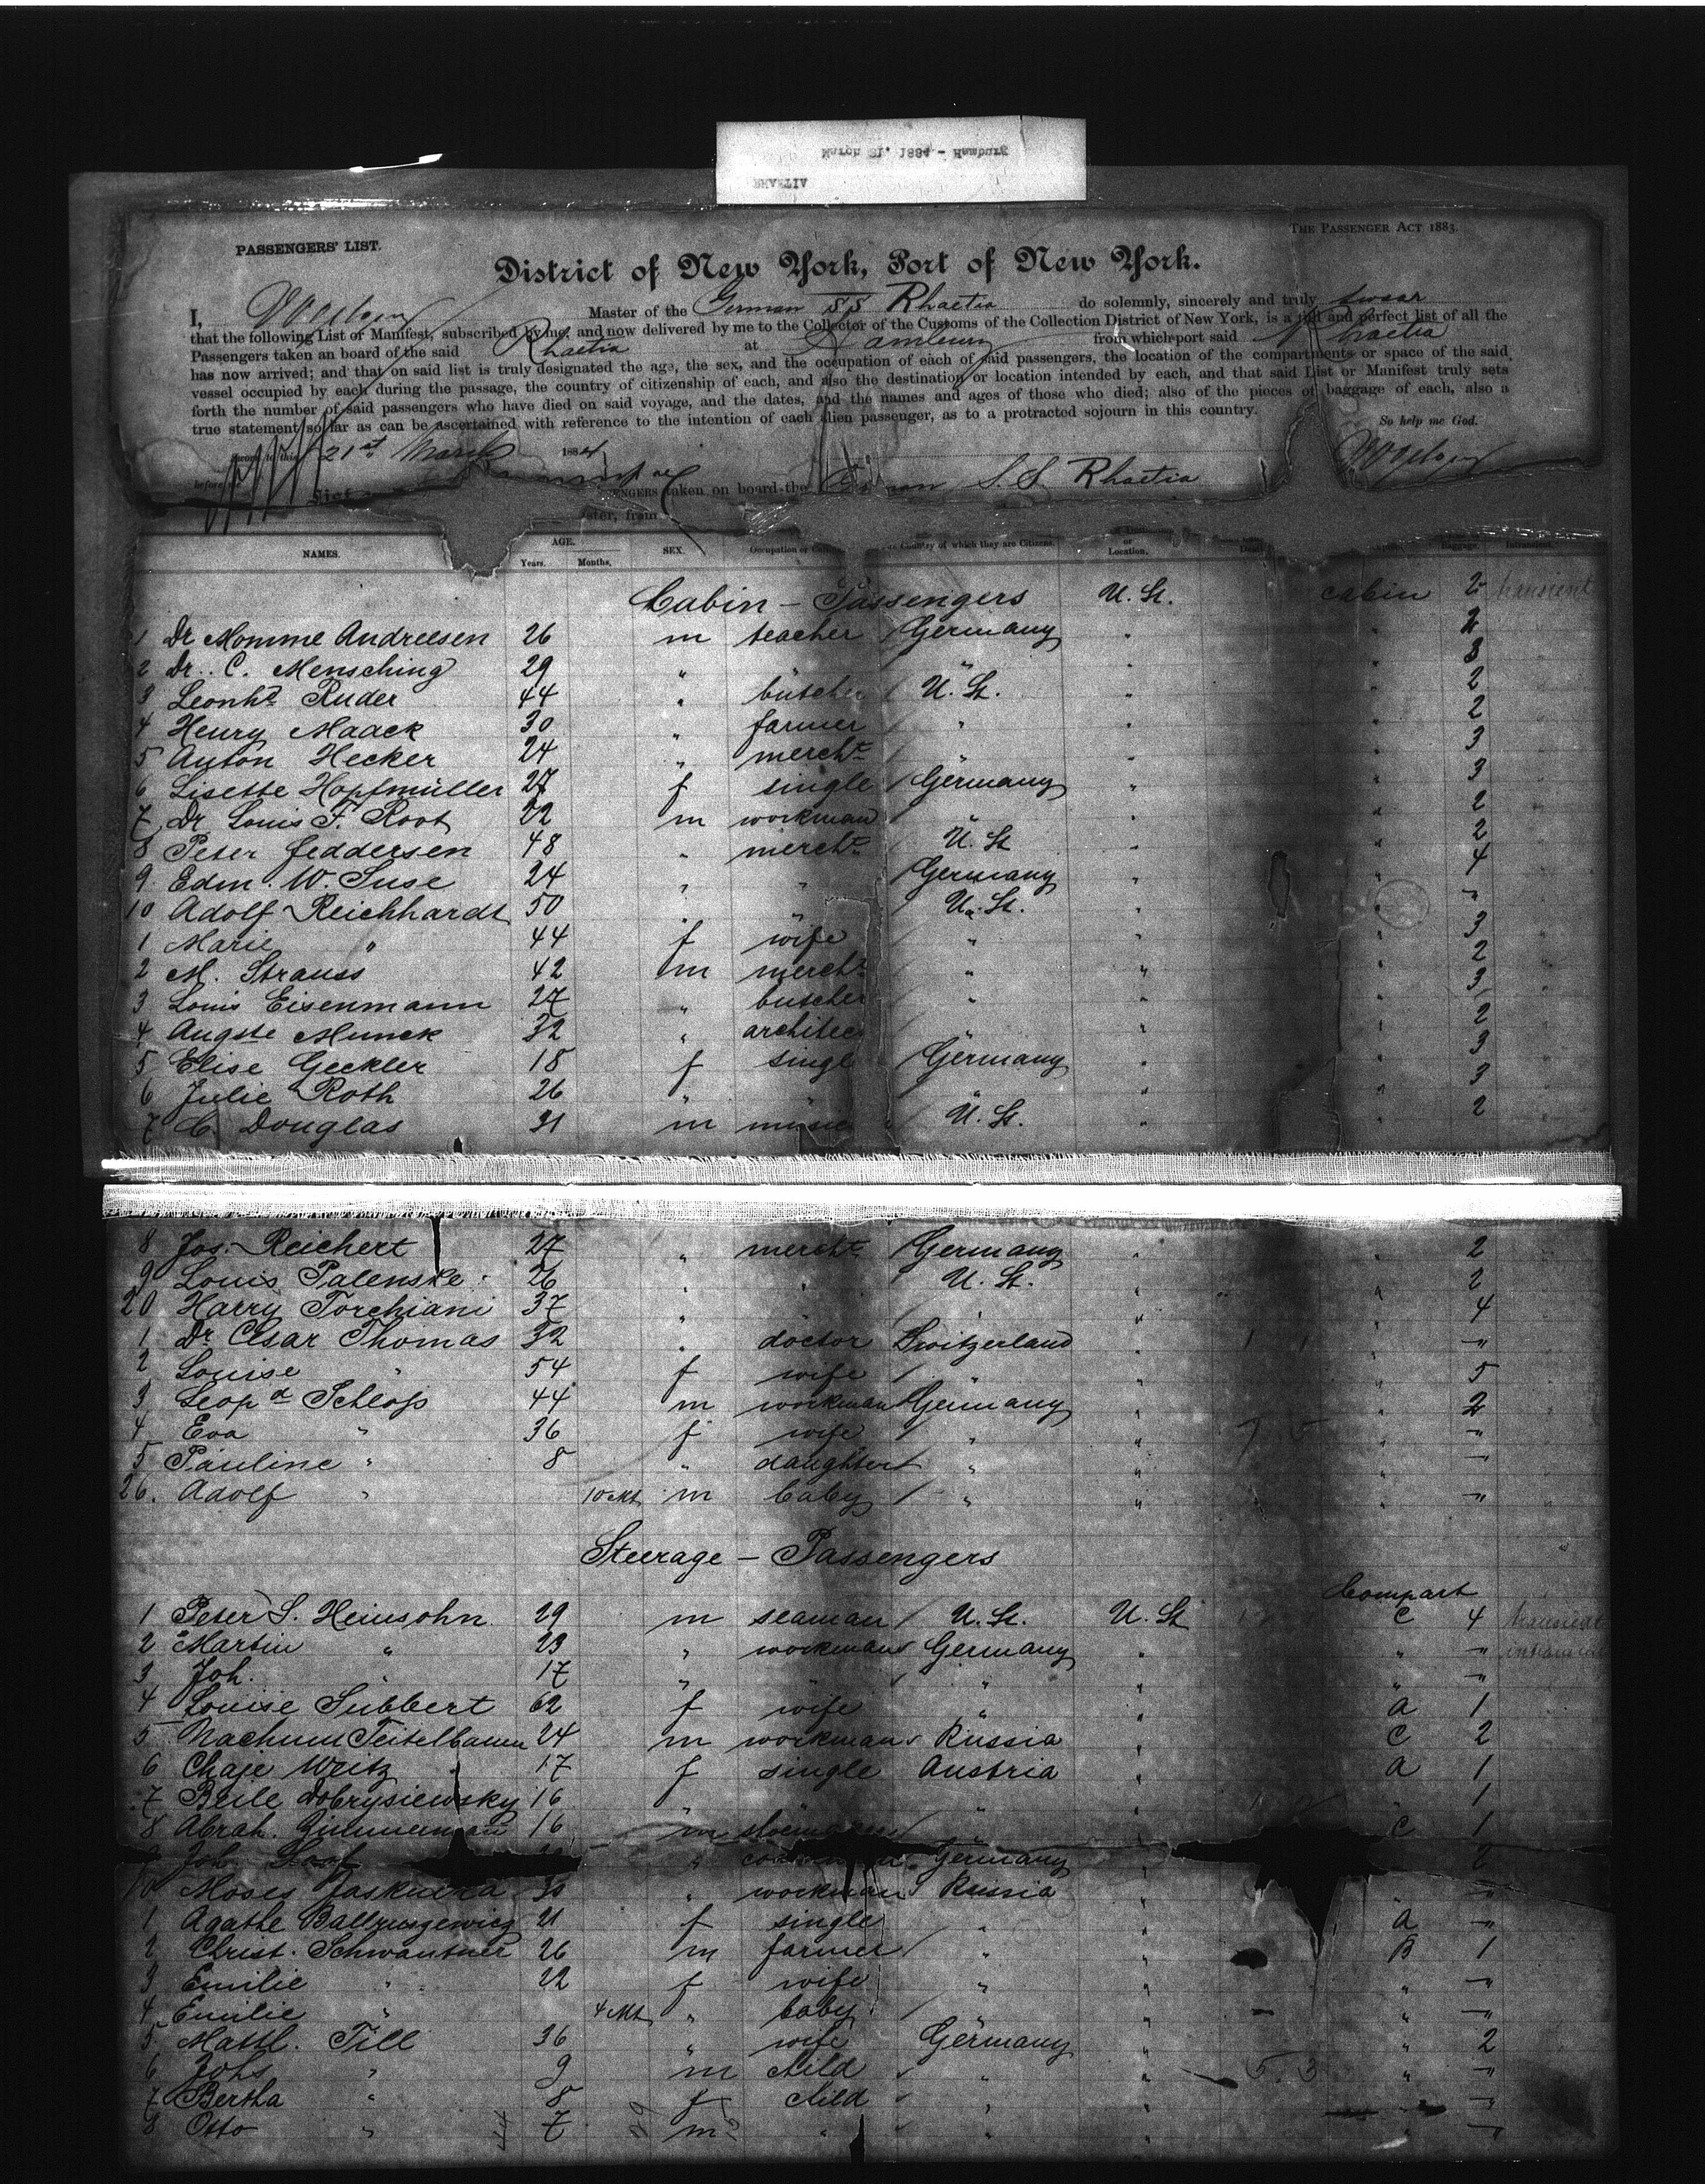 March 21. 1884 - Hamburg
RHAETIA
PASSENGERS' LIST.
THE PASSENGER ACT 1883.
District of New York, Port of New York.
I, Master of the German SS Rhaetia do solemnly, sincerely and truly swear
that the following List or Manifest, subscribed by me, and now delivered by me to the Collector of the Customs of the Collection District of New York, is a full and perfect list of all the
Passengers taken an board of the said Rhaetia at Hamburg from which port said Rhaetia
has now arrived; and that on said list is truly designated the age, the sex, and the occupation of each of said passengers, the location of the compartments or space of the said
vessel occupied by each during the passage, the country of citizenship of each, and also the destination or location intended by each, and that said List or Manifest truly sets
forth the number of said passengers who have died on said voyage, and the dates, and the names and ages of those who died; also of the pieces of baggage of each, also a
true statement so far as can be ascertained with reference to the intention of each alien passenger, as to a protracted sojourn in this country.
So help me God.
to this 21st March 1884
before
List taken on board the German S. S. Rhaetia
from
NAMES. AGE. Years. Months. SEX. Occupation or Country of which they are Citizens. or Location. Baggage.
Cabin - Passengers U. St. cabin 2 transient
1 Dr Momme Andresen 26 m teacher Germany " " 2
2 Dr. C. Mensching 29 " " " " 3
3 Leonhd Ruder 44 " butcher U. St. " " 2
4 Henry Maack 30 " farmer " " " 2
5 Anton Hecker 24 " mercht " " " 3
6 Lisette Hopfmüller 27 f single Germany " " 3
7 Dr Louis F. Root 22 m workman " " " 2
8 Peter Jeddersen 48 " mercht U. St " " 2
9 Edm. W. Suse 24 " " Germany " " 4
10 Adolf Reichhardt 50 " " U. St. " " "
1 Marie " 44 f wife " " " 3
2 M. Strauss 42 m mercht " " " 2
3 Louis Eisenmann 27 " butcher " " " 3
4 Augste Munck 32 " architec " " " 2
5 Elise Geckler 18 f singl Germany " " 3
6 Julie Roth 26 " " " " " 3
7 C. Douglas 31 m music U. St. " " 2
8 Jos. Reichert 27 " mercht Germany " " 2
9 Louis Palenske 26 " " U. St. " " 2
20 Harry Torchiani 37 " " " " 4
1 Dr Cesar Thomas 32 " doctor Switzerland " " "
2 Louise " 54 f wife " " " 5
3 Leopd Schloss 44 m workman Germany " " 2
4 Eva " 36 f wife " " " "
5 Pauline " 8 " daughter " " " "
26. Adolf " 10 Mt m baby " " " "
Steerage - Passengers
Compart
1 Peter S. Heinsohn 29 m seaman U. St. U. St C 4 transient
2 Martin " 23 " workman Germany " " "
3 Joh. " 17 " " " " " "
4 Louise Subbert 62 f wife " " A 1
5 Nachum Teitelbaum 24 m workman Russia " C 2
6 Chaje Weitz 17 f single Austria " A 1
7 Beile Dobrysiewsky 16 " " " " " 1
8 Abrah. Zimmerman 16 m " C 1
9 Joh. " Germany " 2
10 Moses 30 " workman Russia " " "
1 Agathe 21 f single " " A "
2 Christ. Schwantner 26 m farmer " " B 1
3 Emilie " 22 f wife " " " "
4 Emilie " 4 Mt " baby " " "
5 Mathl. Till 36 " wife Germany " " 2
6 Johs " 9 m child " " " "
7 Bertha " 8 f child " " " "
8 Otto " 7 m " " " " "